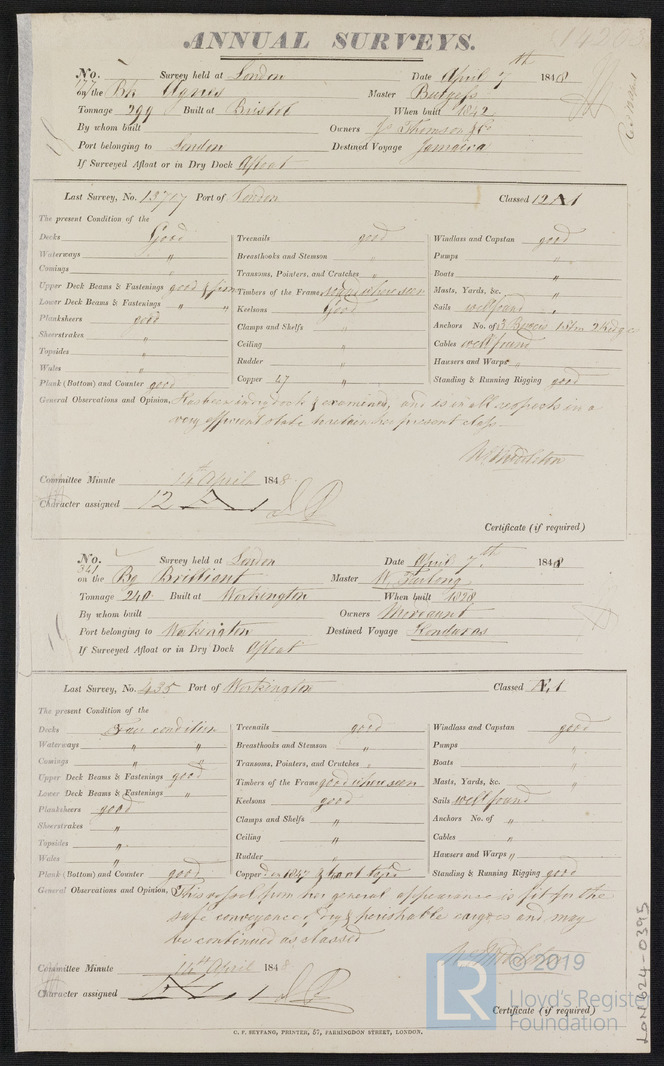 ANNUAL SURVEYS.
No. 177 Survey held at London Date April 7th 1848
on the Bk Agnes Master Burgess
Tonnage 299 Built at Bristol When built 1842
By whom built Owners J. Thomson & Co
Port belonging to London Destined Voyage Jamaica
If Surveyed Afloat or in Dry Dock Afloat
Last Survey, No. 13707 Port of London Classed 12 A 1
The present Condition of the
Decks Good Treenails good Windlass and Capstan good
Waterways " Breasthooks and Stemson " Pumps "
Comings " Transoms, Pointers, and Crutches " Boats "
Upper Deck Beams & Fastenings good & firm Timbers of the Frame good where seen Masts, Yards, &c. "
Lower Deck Beams & Fastenings " " Keelsons Good Sails well found
Planksheers good Clamps and Shelfs " Anchors No. of 3 Bowers 1 Stm 2 Kedge
Sheerstrakes " Ceiling " Cables well found
Topsides " Rudder " Hawsers and Warps "
Wales " Copper 47 " Standing & Running Rigging good
Plank (Bottom) and Counter good
General Observations and Opinion. Has been in dry dock & examined, and is in all respects in a
very efficient state to retain her present class.
W Middleton
Committee Minute 14th April 1848
Character assigned 12 A 1
Certificate (if required)
No. 341 Survey held at London Date April 7th. 1848
on the Bg Brilliant Master W.
Tonnage 240 Built at Workington When built 1828
By whom built Owners
Port belonging to Workington Destined Voyage Honduras
If Surveyed Afloat or in Dry Dock Afloat
Last Survey, No. 435 Port of Workington Classed Æ 1
The present Condition of the
Decks Fair condition Treenails good Windlass and Capstan good
Waterways " " Breasthooks and Stemson " Pumps "
Comings " " Transoms, Pointers, and Crutches " Boats "
Upper Deck Beams & Fastenings good Timbers of the Frame good where seen Masts, Yards, &c. "
Lower Deck Beams & Fastenings " Keelsons good Sails well found
Planksheers good Clamps and Shelfs " Anchors No. of "
Sheerstrakes " Ceiling " Cables "
Topsides " Rudder " Hawsers and Warps "
Wales " Copper in 1847 Standing & Running Rigging good
Plank (Bottom) and Counter good
General Observations and Opinion. This vessel from her general appearance is fit for the
safe conveyance of dry & perishable cargoes and may
be continued as classed
W Middleton
Committee Minute 14th April 1848
Character assigned Æ 1
Certificate (if required)
C. F. SEYFANG, PRINTER, 57, FARRINGDON STREET, LONDON.
LON624-0395
LR © 2019
Lloyd's Register
Foundation